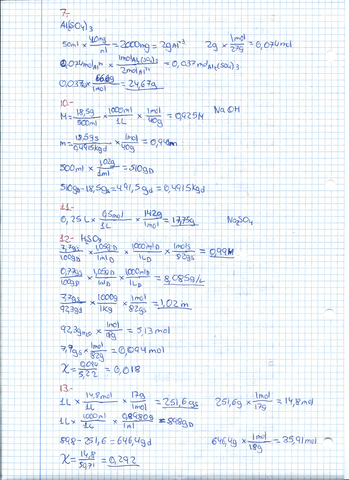 7.-
Al(SO4)3
50ml × 40mg/ml = 2000mg = 2gAl⁺³ 2g × 1mol/27g = 0,074mol
0,074molAl⁺³ × 1molAl2(SO4)3/2molAl⁺³ = 0,037molAl2(SO4)3
0,037g × 666g/1mol = 24,67g
10.-
M = 18,5g/500ml × 1000ml/1L × 1mol/40g = 0,925M NaOH
m = 18,5gs/0,4915kgd × 1mol/40g = 0,94m
500ml × 1,02g/1ml = 510gD
510gD - 18,5gs = 491,5gd = 0,4915kgd
11.-
0,25L × 0,5mol/1L × 142g/1mol = 17,75g Na2SO4
12.- H2SO3
7,7gs/100gD × 1,050gD/1mlD × 1000mlD/1LD × 1mols/82gs = 0,99M
0,77gs/100gD × 1,050gD/1mlD × 1000mlD/1LD = 8,085g/L
7,7gs/92,3gd × 1000g/1Kg × 1mol/82gs = 1,02m
92,3gH2O × 1mol/18g = 5,13mol
7,7gs × 1mol/82g = 0,094mol
X = 0,094/5,22 = 0,018
13.-
1L × 14,8mol/1L × 17g/1mol = 251,6gs 251,6g × 1mol/17g = 14,8mol
1L × 1000ml/1L × 0,8980g/1ml = 898gD
898 - 251,6 = 646,4gd 646,4g × 1mol/18g = 35,91mol
X = 14,8/50,71 = 0,292